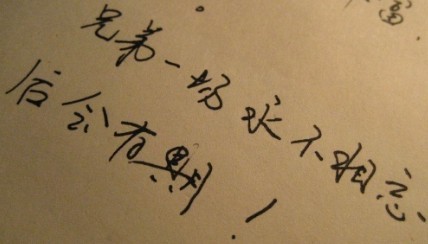 兄弟一场永不相忘
后会有期！